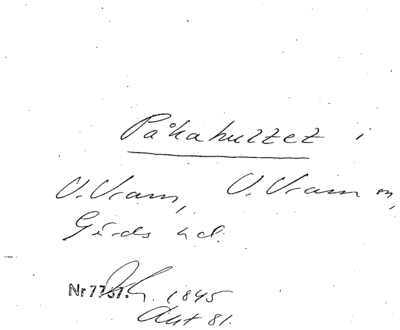 Påkahuszet i
V. Vram, Ö. Vram sn,
Gärds hd.
Nr 7767. 1845
Aut 81.